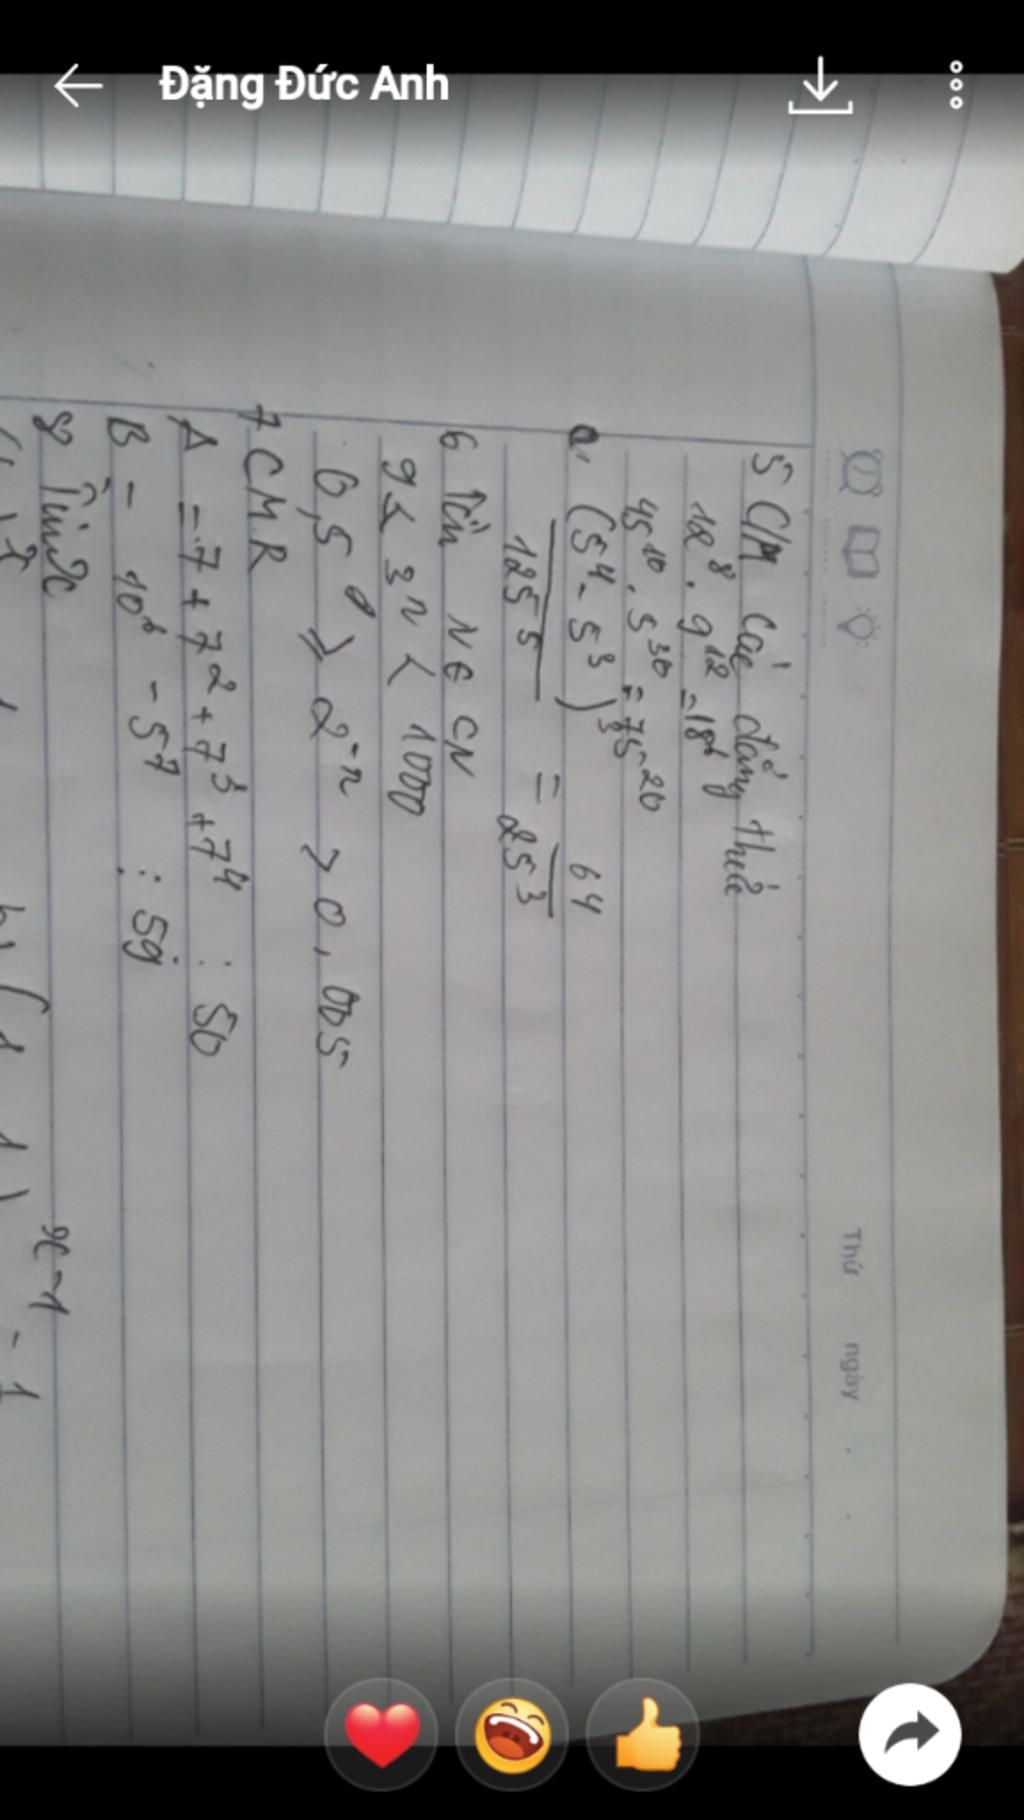 Đặng Đức Anh
Thứ ngày
5 C/M các đẳng thức
12⁸ . 9¹² = 18¹⁶
45¹⁰ . 5³⁰ = 75²⁰
a. (5⁴ - 5³)³ / 125⁵ = 64 / 25³
6 Tìn N ∈ CN
9 < 3ⁿ < 1000
⩾ 2⁻ⁿ > 0,
7 CMR
A = 7 + 7² + 7³ + 7⁴ ⋮ 50
B = 10⁶ - 5⁷ ⋮ 59
8
x-1